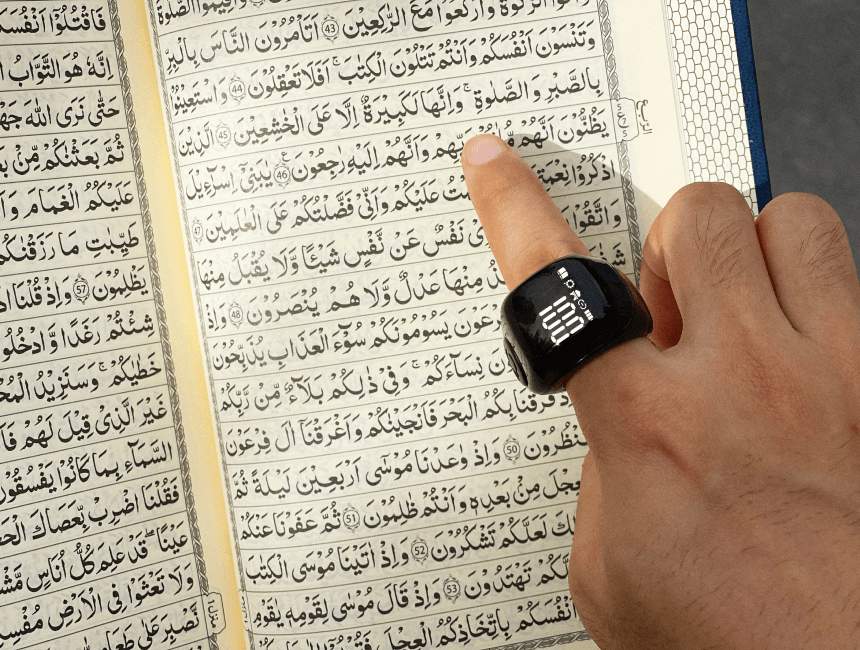 وَاَقِيْمُوا الصَّلٰوةَ
وَاٰتُوا الزَّكٰوةَ وَارْكَعُوْا مَعَ الرّٰكِعِيْنَ 43 اَتَاْمُرُوْنَ النَّاسَ بِالْبِرِّ
وَتَنْسَوْنَ اَنْفُسَكُمْ وَاَنْتُمْ تَتْلُوْنَ الْكِتٰبَ ؕ اَفَلَا تَعْقِلُوْنَ 44 وَاسْتَعِيْنُوْا
بِالصَّبْرِ وَالصَّلٰوةِ ؕ وَاِنَّهَا لَكَبِيْرَةٌ اِلَّا عَلَى الْخٰشِعِيْنَ 45 الَّذِيْنَ
يَظُنُّوْنَ اَنَّهُمْ رَبِّهِمْ وَاَنَّهُمْ اِلَيْهِ رٰجِعُوْنَ 46 يٰبَنِيْٓ اِسْرَآءِيْلَ
اذْكُرُوْا نِعْمَتِيَ عَلَيْكُمْ وَاَنِّيْ فَضَّلْتُكُمْ عَلَى الْعٰلَمِيْنَ 47
وَاتَّقُوْا نَفْسٌ عَنْ نَّفْسٍ شَيْـًٔا وَّلَا يُقْبَلُ مِنْهَا
مِنْهَا عَدْلٌ وَّلَا هُمْ يُنْصَرُوْنَ 48 وَاِذْ
يَسُوْمُوْنَكُمْ سُوْٓءَ الْعَذَابِ يُذَبِّحُوْنَ
نِسَآءَكُمْ ؕ وَفِيْ ذٰلِكُمْ بَلَآءٌ مِّنْ رَّبِّكُمْ
فَرَقْنَا بِكُمُ الْبَحْرَ فَاَنْجَيْنٰكُمْ وَاَغْرَقْنَآ اٰلَ فِرْعَوْنَ
تَنْظُرُوْنَ 50 وَاِذْ وٰعَدْنَا مُوْسٰٓى اَرْبَعِيْنَ لَيْلَةً ثُمَّ
مِنْۢ بَعْدِهٖ وَاَنْتُمْ ظٰلِمُوْنَ 51 ثُمَّ عَفَوْنَا عَنْكُمْ
لَعَلَّكُمْ تَشْكُرُوْنَ 52 وَاِذْ اٰتَيْنَا مُوْسَى الْكِتٰبَ
تَهْتَدُوْنَ 53 وَاِذْ قَالَ مُوْسٰى لِقَوْمِهٖ يٰقَوْمِ
اَنْفُسَكُمْ بِاتِّخَاذِكُمُ الْعِجْلَ
فَاقْتُلُوْٓا اَنْفُسَكُمْ
اِنَّهٗ هُوَ التَّوَّابُ
حَتّٰى نَرَى اللّٰهَ
ثُمَّ بَعَثْنٰكُمْ مِّنْۢ
عَلَيْكُمُ الْغَمَامَ
طَيِّبٰتِ مَا رَزَقْنٰكُمْ
يَظْلِمُوْنَ 57 وَاِذْ قُلْنَا
شِئْتُمْ رَغَدًا وَّادْخُلُوا
خَطٰيٰكُمْ ؕ وَسَنَزِيْدُ
غَيْرَ الَّذِيْ قِيْلَ لَهُمْ
السَّمَآءِ بِمَا كَانُوْا يَفْسُقُوْنَ
فَقُلْنَا اضْرِبْ بِّعَصَاكَ
عَيْنًا ؕ قَدْ عَلِمَ كُلُّ اُنَاسٍ
وَلَا تَعْثَوْا فِى الْاَرْضِ
نَّصْبِرَ عَلٰى طَعَامٍ